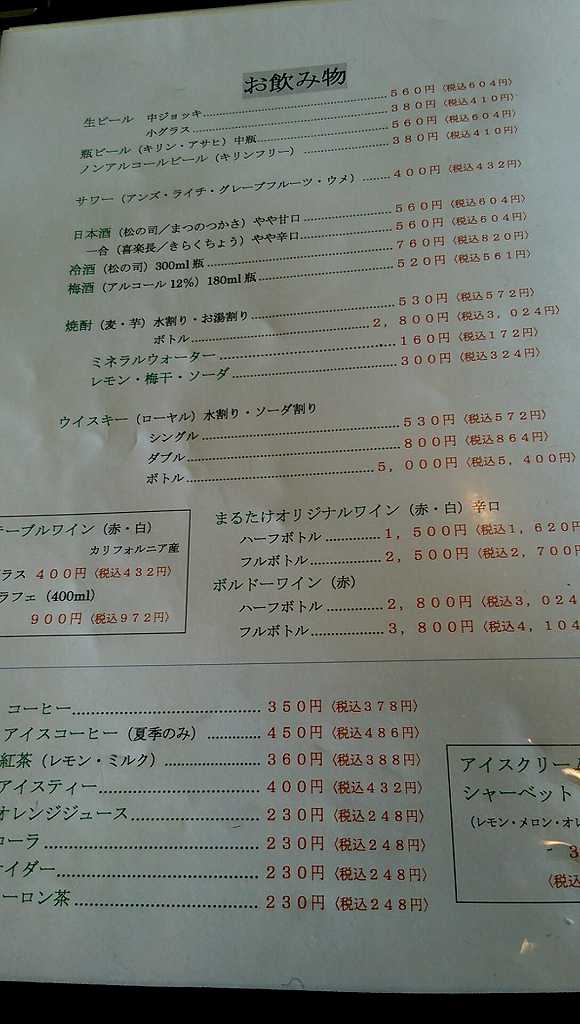 お飲み物
生ビール 中ジョッキ 560円〈税込604円〉
小グラス 380円〈税込410円〉
瓶ビール（キリン・アサヒ）中瓶 560円〈税込604円〉
ノンアルコールビール（キリンフリー） 380円〈税込410円〉
サワー（アンズ・ライチ・グレープフルーツ・ウメ） 400円〈税込432円〉
日本酒（松の司／まつのつかさ）やや甘口 560円〈税込604円〉
一合（喜楽長／きらくちょう）やや辛口 560円〈税込604円〉
冷酒（松の司）300ml瓶 760円〈税込820円〉
梅酒（アルコール12%）180ml瓶 520円〈税込561円〉
焼酎（麦・芋）水割り・お湯割り 530円〈税込572円〉
ボトル 2，800円〈税込3，024円〉
ミネラルウォーター 160円〈税込172円〉
レモン・梅干・ソーダ 300円〈税込324円〉
ウイスキー（ローヤル）水割り・ソーダ割り
シングル 530円〈税込572円〉
ダブル 800円〈税込864円〉
ボトル 5，000円〈税込5，400円〉
テーブルワイン（赤・白）
カリフォルニア産
ラス 400円〈税込432円〉
ラフェ（400ml）
900円〈税込972円〉
まるたけオリジナルワイン（赤・白）辛口
ハーフボトル 1，500円〈税込1，620円
フルボトル 2，500円〈税込2，700円
ボルドーワイン（赤）
ハーフボトル 2，800円〈税込3，024
フルボトル 3，800円〈税込4，104
コーヒー 350円〈税込378円〉
アイスコーヒー（夏季のみ） 450円〈税込486円〉
紅茶（レモン・ミルク） 360円〈税込388円〉
アイスティー 400円〈税込432円〉
オレンジジュース 230円〈税込248円〉
コーラ 230円〈税込248円〉
イダー 230円〈税込248円〉
ーロン茶 230円〈税込248円〉
アイスクリーム
シャーベット
（レモン・メロン・オレ
3
〈税込